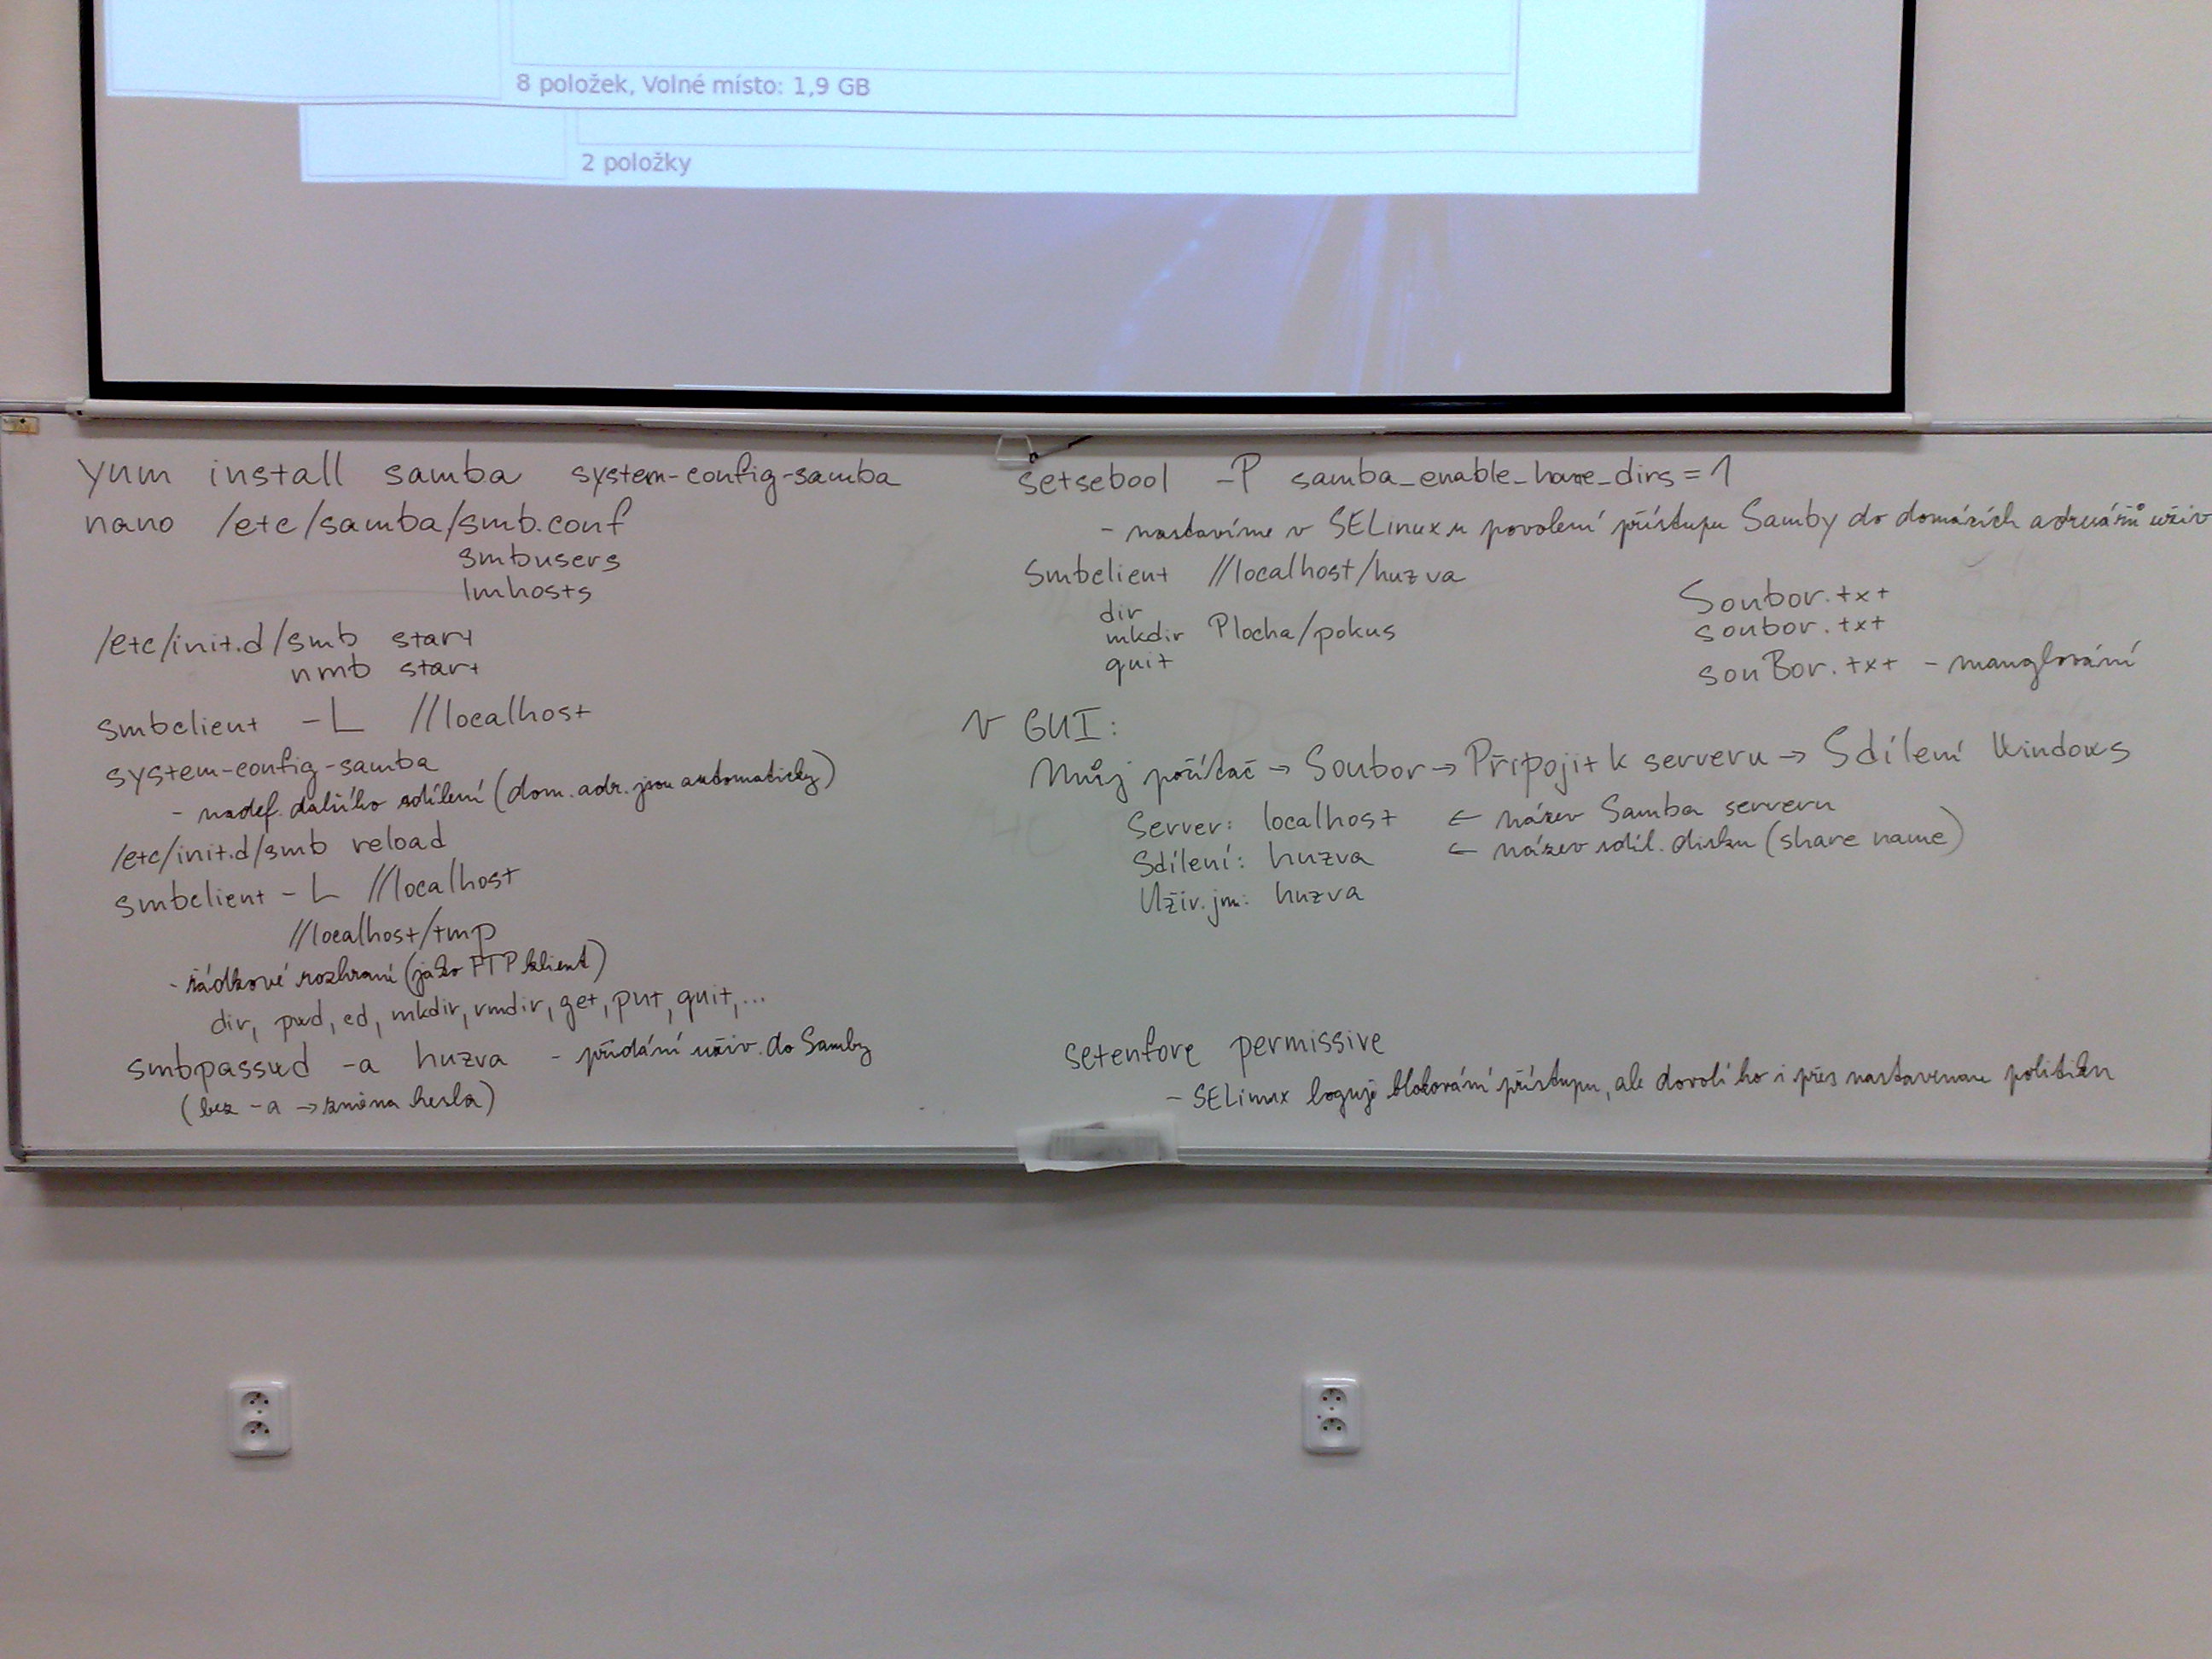 8 položek, Volné místo: 1,9 GB
2 položky
yum install samba system-config-samba
nano /etc/samba/smb.conf
smbusers
lmhosts
/etc/init.d/smb start
nmb start
smbclient -L //localhost
system-config-samba
- nadef. dalšího sdílení (dom. adr. jsou automaticky)
/etc/init.d/smb reload
smbclient -L //localhost
//localhost/tmp
- řádkové rozhraní (jako FTP klient)
dir, pwd, cd, mkdir, rmdir, get, put, quit, ...
smbpasswd -a huzva - přidání uživ. do Samby
(bez -a → změna hesla)
setsebool -P samba_enable_home_dirs=1
- nastavíme v SELinuxu povolení přístupu Samby do domácích adresářů uživ
smbclient //localhost/huzva
dir
mkdir Plocha/pokus
quit
Soubor.txt
soubor.txt
souBor.txt - manglování
V GUI:
Můj počítač → Soubor → Připojit k serveru → Sdílení Windows
Server: localhost ← název Samba serveru
Sdílení: huzva ← název sdíl. disku (share name)
Uživ. jm: huzva
setenfore permissive
- SELinux loguje blokování přístupu, ale dovolí ho i přes nastavenou politiku